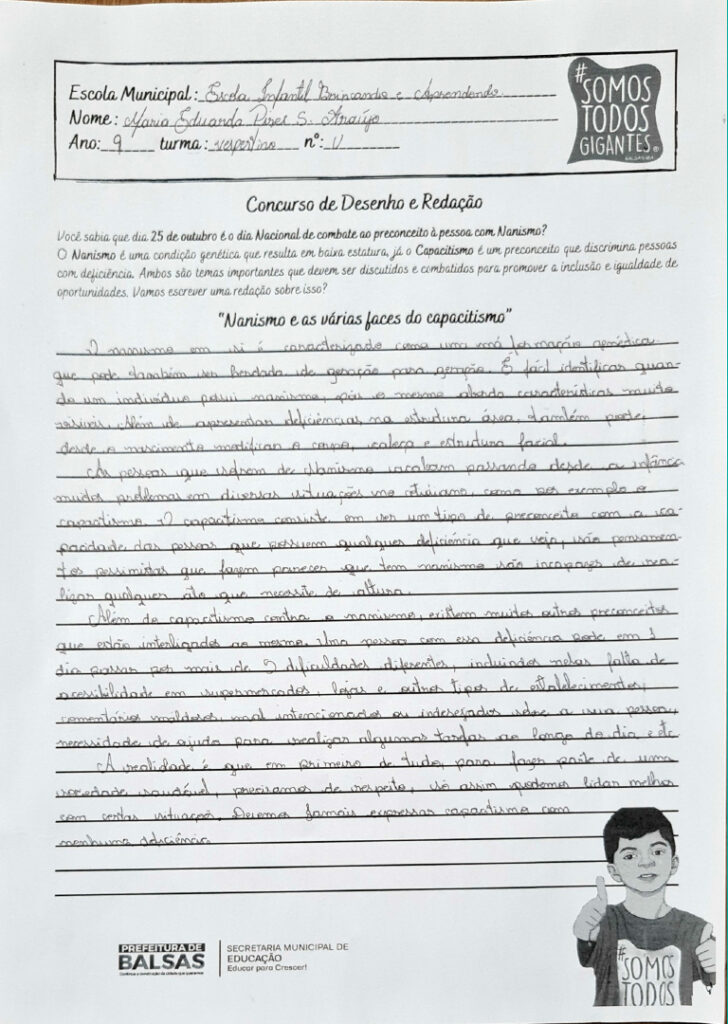 Escola Municipal: Escola Infantil Brincando e Aprendendo
Nome: Maria Eduarda Pires S. Araújo
Ano: 9 turma: vespertino nº: V
#SOMOS
TODOS
GIGANTES®
BALSAS-MA
Concurso de Desenho e Redação
Você sabia que dia 25 de outubro é o dia Nacional de combate ao preconceito à pessoa com Nanismo?
O Nanismo é uma condição genética que resulta em baixa estatura, já o Capacitismo é um preconceito que discrimina pessoas
com deficiência. Ambos são temas importantes que devem ser discutidos e combatidos para promover a inclusão e igualdade de
oportunidades. Vamos escrever uma redação sobre isso?
"Nanismo e as várias faces do capacitismo"
O nanismo em si é caracterizado como uma má formação genética
que pode também ser herdada de geração para geração. É fácil identificar quan-
do um indivíduo possui nanismo, pois o mesmo aborda características muito
visíveis. Além de apresentar deficiências na estrutura óssea, também pode,
desde o nascimento modificar o corpo, cabeça e estrutura facial.
As pessoas que sofrem de Nanismo acabam passando desde a infância
muitos problemas em diversas situações no cotidiano, como por exemplo o
capacitismo. O capacitismo consiste em ser um tipo de preconceito com a ca-
pacidade das pessoas que possuem qualquer deficiência que seja, são pensamen-
tos pessimistas que fazem parecer que tem nanismo são incapazes de rea-
lizar qualquer ato que necessite de altura.
Além do capacitismo contra o nanismo, existem muitos outros preconceitos
que estão interligados ao mesmo. Uma pessoa com essa deficiência pode em 1
dia passar por mais de 5 dificuldades diferentes, incluindos nelas falta de
acessibilidade em supermercados, lojas e outros tipos de estabelecimentos,
comentários maldosos, mal intencionados ou sobre a sua pessoa,
necessidade de ajuda para realizar algumas tarefas ao longo do dia e etc
A realidade é que em primeiro de tudo, para fazer parte de uma
sociedade saudável, precisamos de respeito, só assim podemos lidar melhor
com certas situações. Devemos jamais expressar capacitismo com
nenhuma deficiência.
PREFEITURA DE
BALSAS
SECRETARIA MUNICIPAL DE
EDUCAÇÃO
Educar para Crescer!
#SOMOS
TODOS